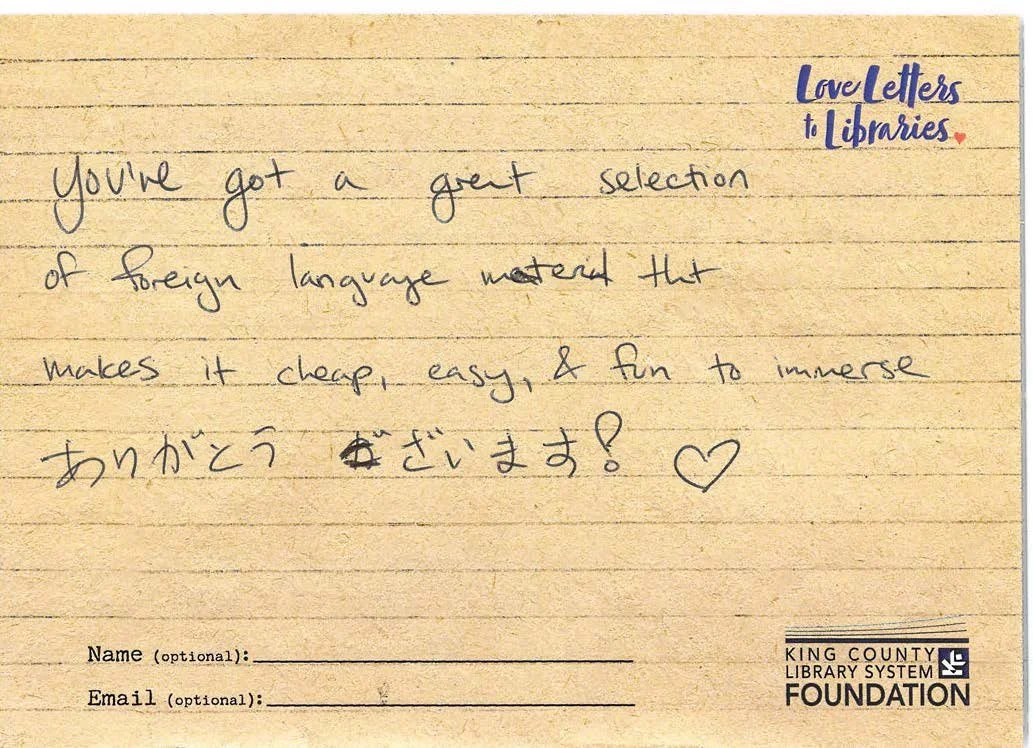 Love Letters
to Libraries
You've got a great selection
of foreign language material tht
makes it cheap, easy, & fun to immerse
ありがとう ございます!
Name (optional):
Email (optional):
KING COUNTY
LIBRARY SYSTEM
FOUNDATION